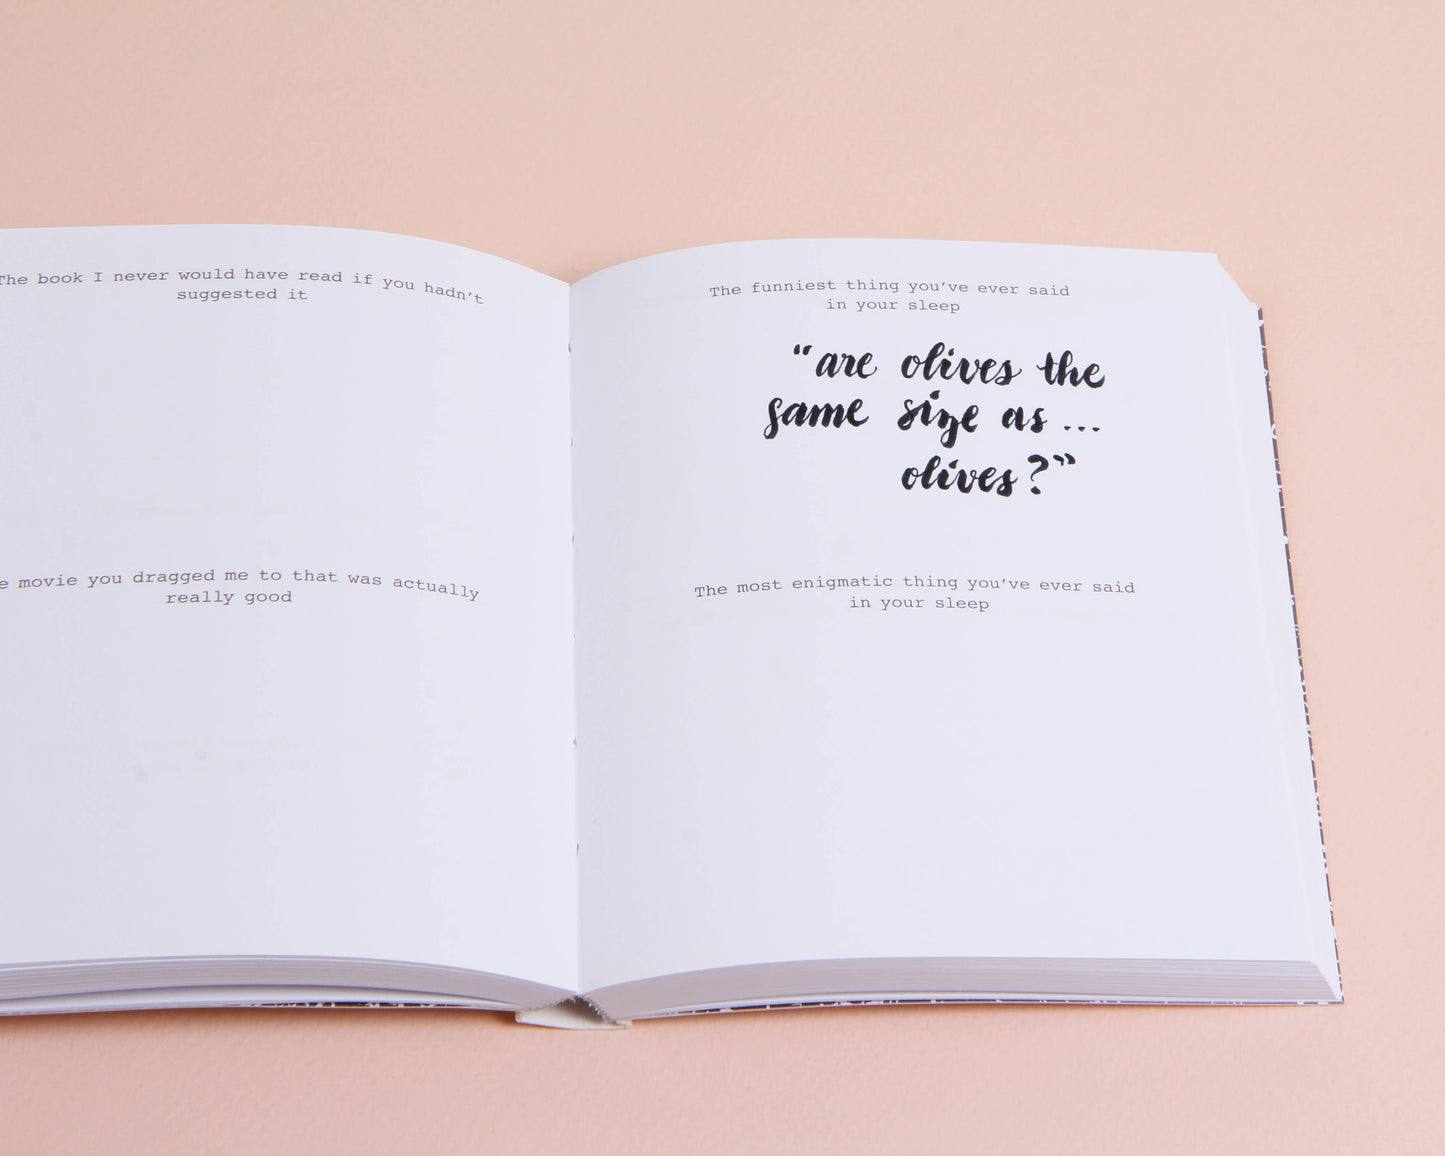 The book I never would have read if you hadn't
suggested it
movie you dragged me to that was actually
really good
The funniest thing you've ever said
in your sleep
"are olives the
same size as ...
olives?"
The most enigmatic thing you've ever said
in your sleep